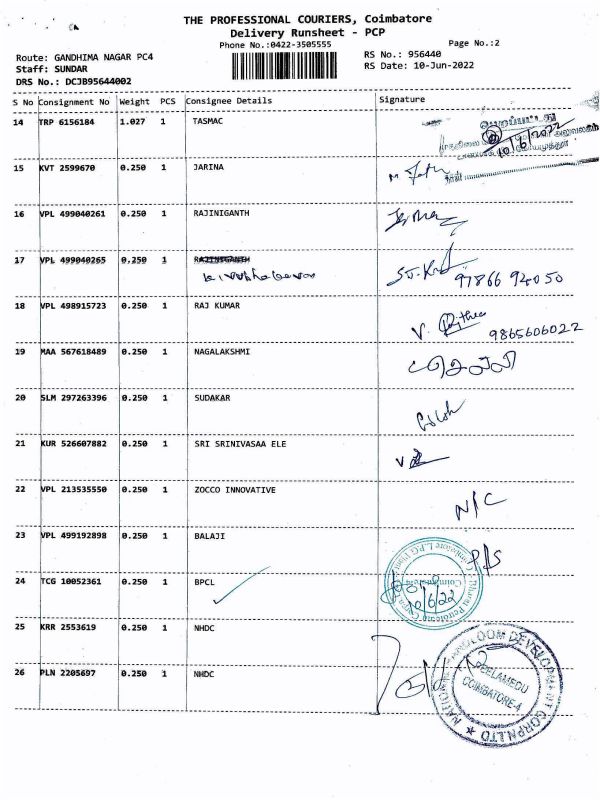 THE PROFESSIONAL COURIERS, Coimbatore
Delivery Runsheet - PCP
Phone No.:0422-3505555
Page No.:2
Route: GANDHIMA NAGAR PC4
RS No.: 956440
Staff: SUNDAR
RS Date: 10-Jun-2022
DRS No.: DCJB95644002
S No Consignment No Weight PCS Consignee Details Signature
14 TRP 6156184 1.027 1 TASMAC
பெறப்பட்டது
10/6/2022
15 KVT 2599670 0.250 1 JARINA
16 VPL 499040261 0.250 1 RAJINIGANTH
17 VPL 499040265 0.250 1 RAJINIGANTH
97866 94050
18 VPL 498915723 0.250 1 RAJ KUMAR
9865606022
19 MAA 567618489 0.250 1 NAGALAKSHMI
20 SLM 297263396 0.250 1 SUDAKAR
21 KUR 526607882 0.250 1 SRI SRINIVASAA ELE
22 VPL 213535550 0.250 1 ZOCCO INNOVATIVE N/C
23 VPL 499192898 0.250 1 BALAJI P/S
24 TCG 10052361 0.250 1 BPCL
10/6/22
25 KRR 2553619 0.250 1 NHDC
26 PLN 2205697 0.250 1 NHDC
NATIONAL HANDLOOM DEVELOPMENT CORPN.LTD
PEELAMEDU
COIMBATORE-4